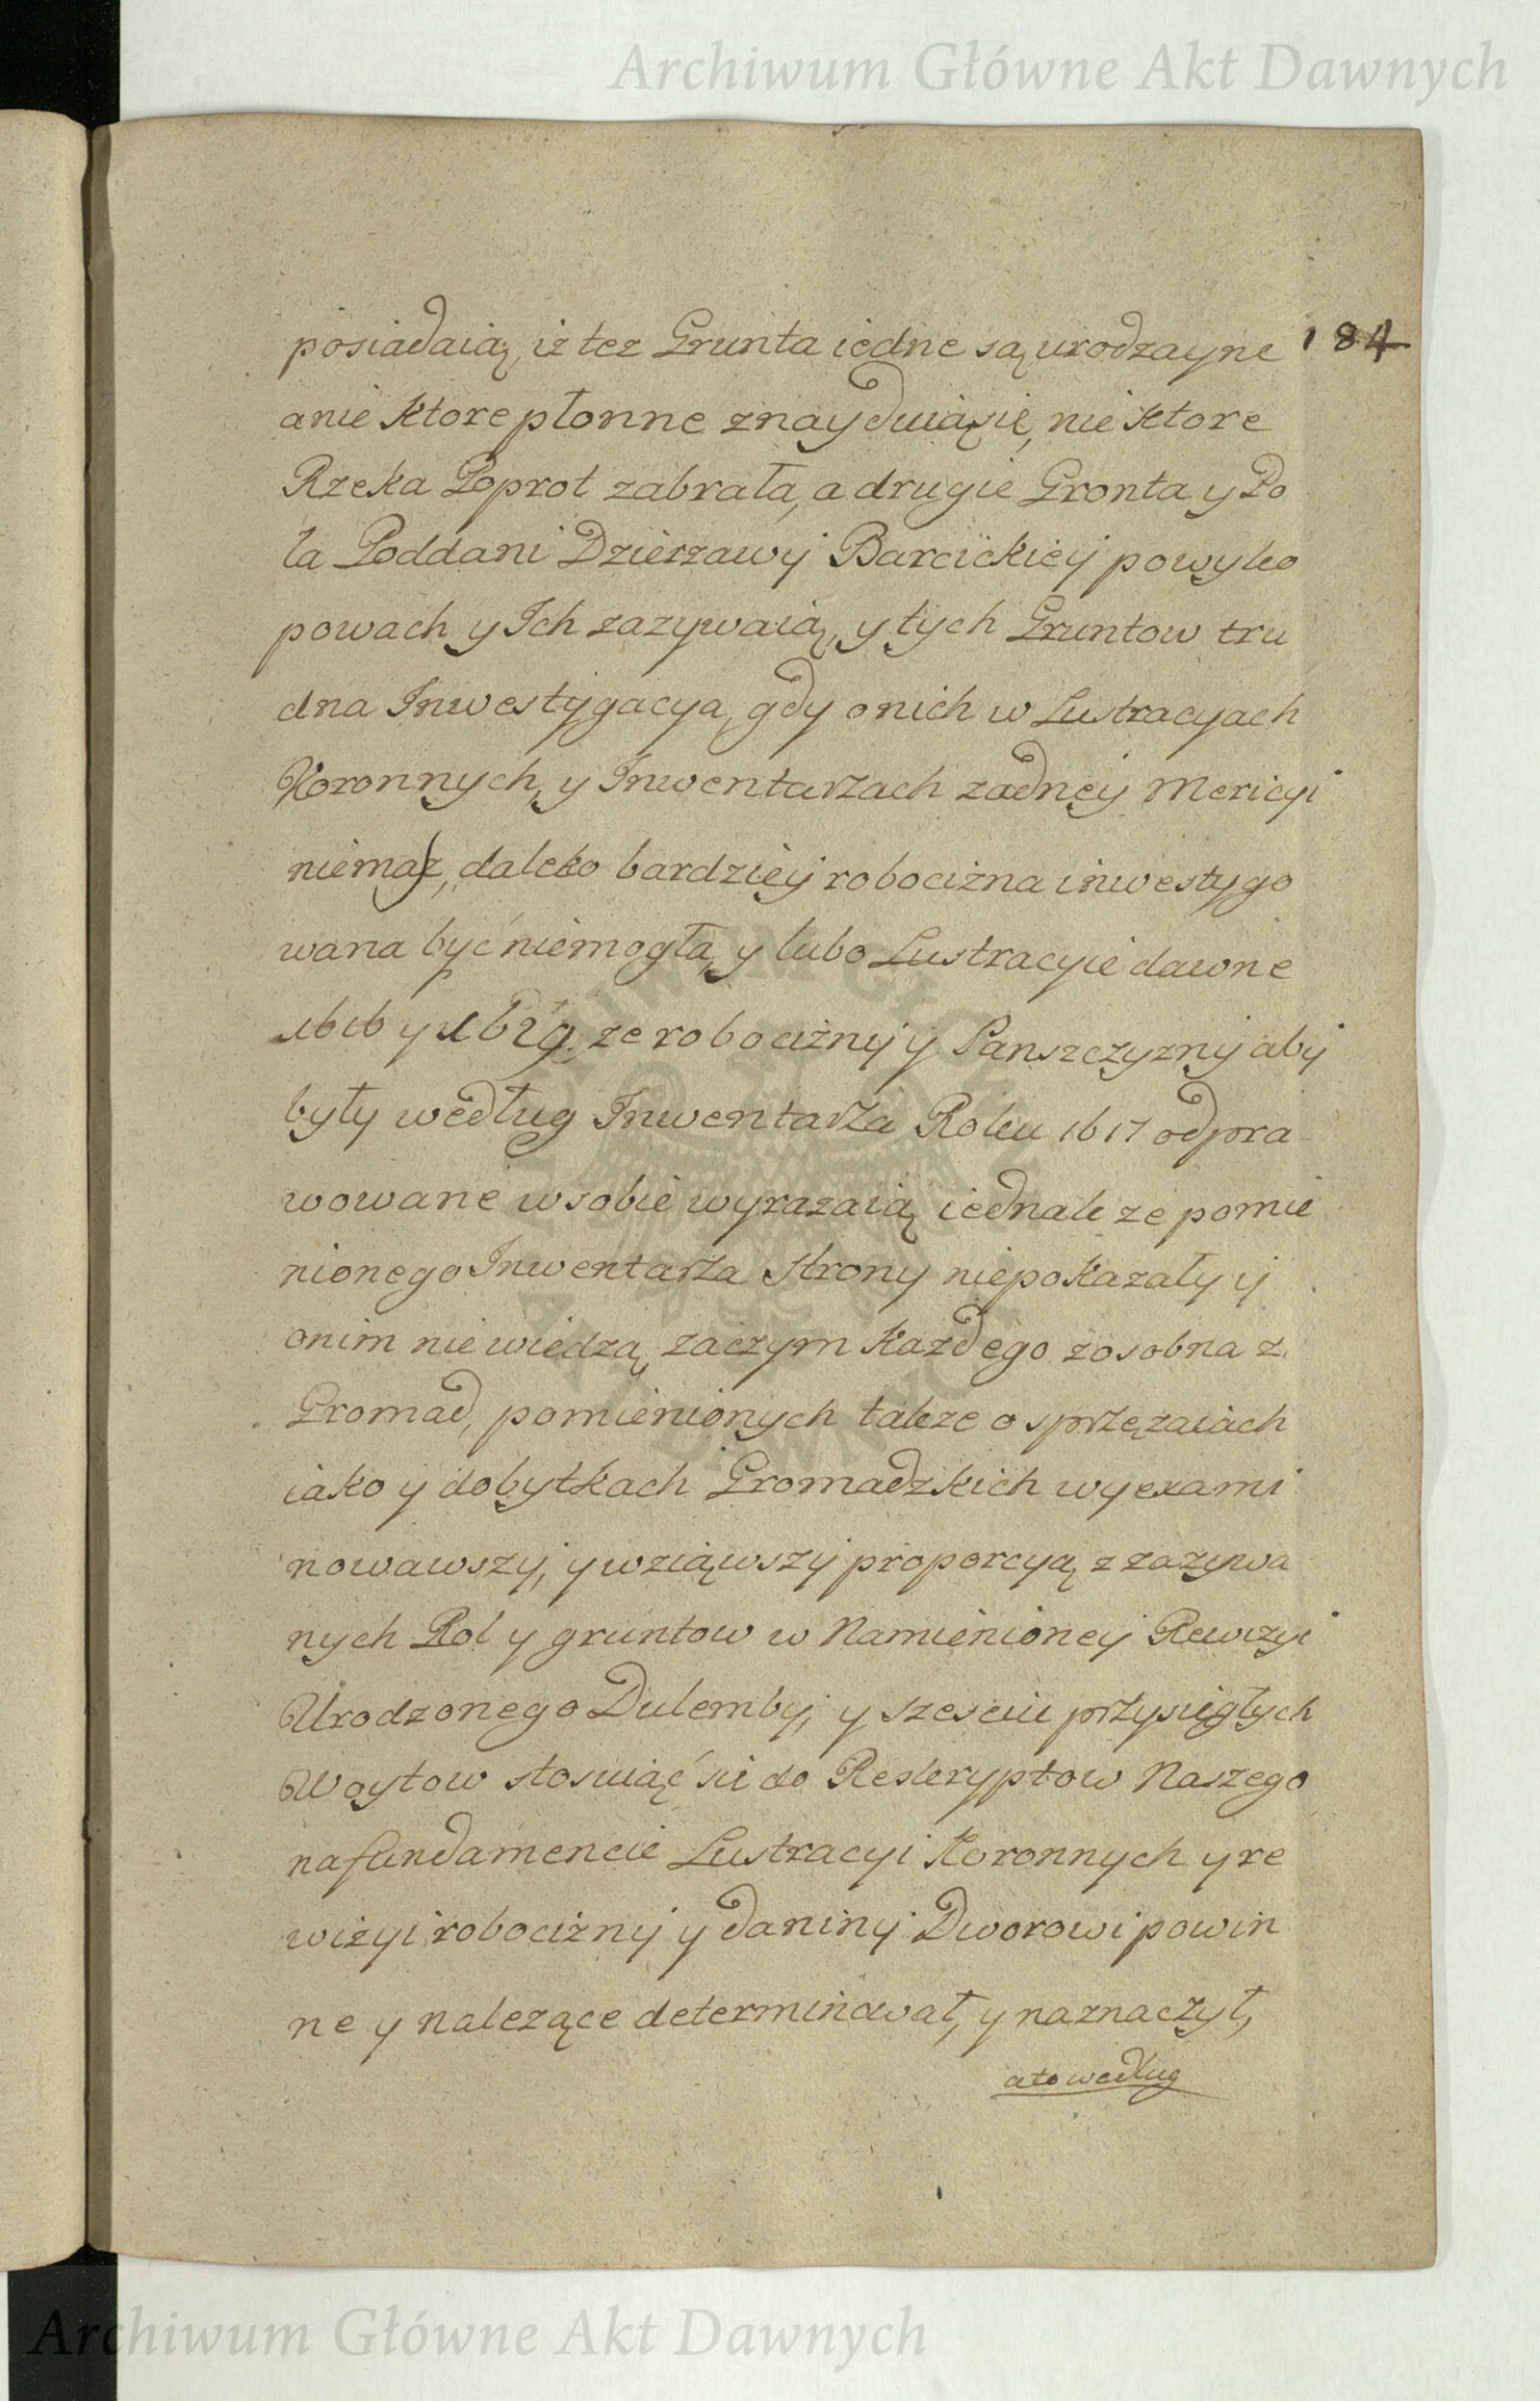 Archiwum Główne Akt Dawnych
184
posiadaią, iz tez Grunta iedne są urodzayne
a nie ktore płonne znayduią się, nie ktore
Rzeka Poprot zabrała, a drugie Gronta y Po
la Poddani Dzierzawy Barcickiey powyko
powach y Ich zazywaią, y tych Gruntow tru
dna Inwestygacya, gdy o nich w Lustracyach
Koronnych, y Inwentarzach zadney Mericyi
niemasz, daleko bardziey robocizna inwestygo
wana być niemogła, y lubo Lustracyie dawne
1616 y ze robocizny y Panszczyzny aby
były według Inwentarza Roku 1617 odpra
wowane w sobie wyrazaią iednak ze pomie
nionego Inwentarza strony niepokazały y
onim nie wiedzą, zaczym kazdego zosobna z
Gromad, pomienionych takze o sprzęzaiach
iako y dobytkach Gromadzkich wyexami
nowawszy, y wziąwszy proporcyą z zazywa
nych Rol y gruntow w Namienioney Rewizyi
Urodzonego Dulemby, y szesciu przysięgłych
Woytow stosuiąć się do Reskryptow Naszego
na fundamencie Lustracyi Koronnych y re
wizyi robocizny y daniny Dworowi powin
ne y nalezące determinował, y naznaczył,
ato według
Archiwum Główne Akt Dawnych